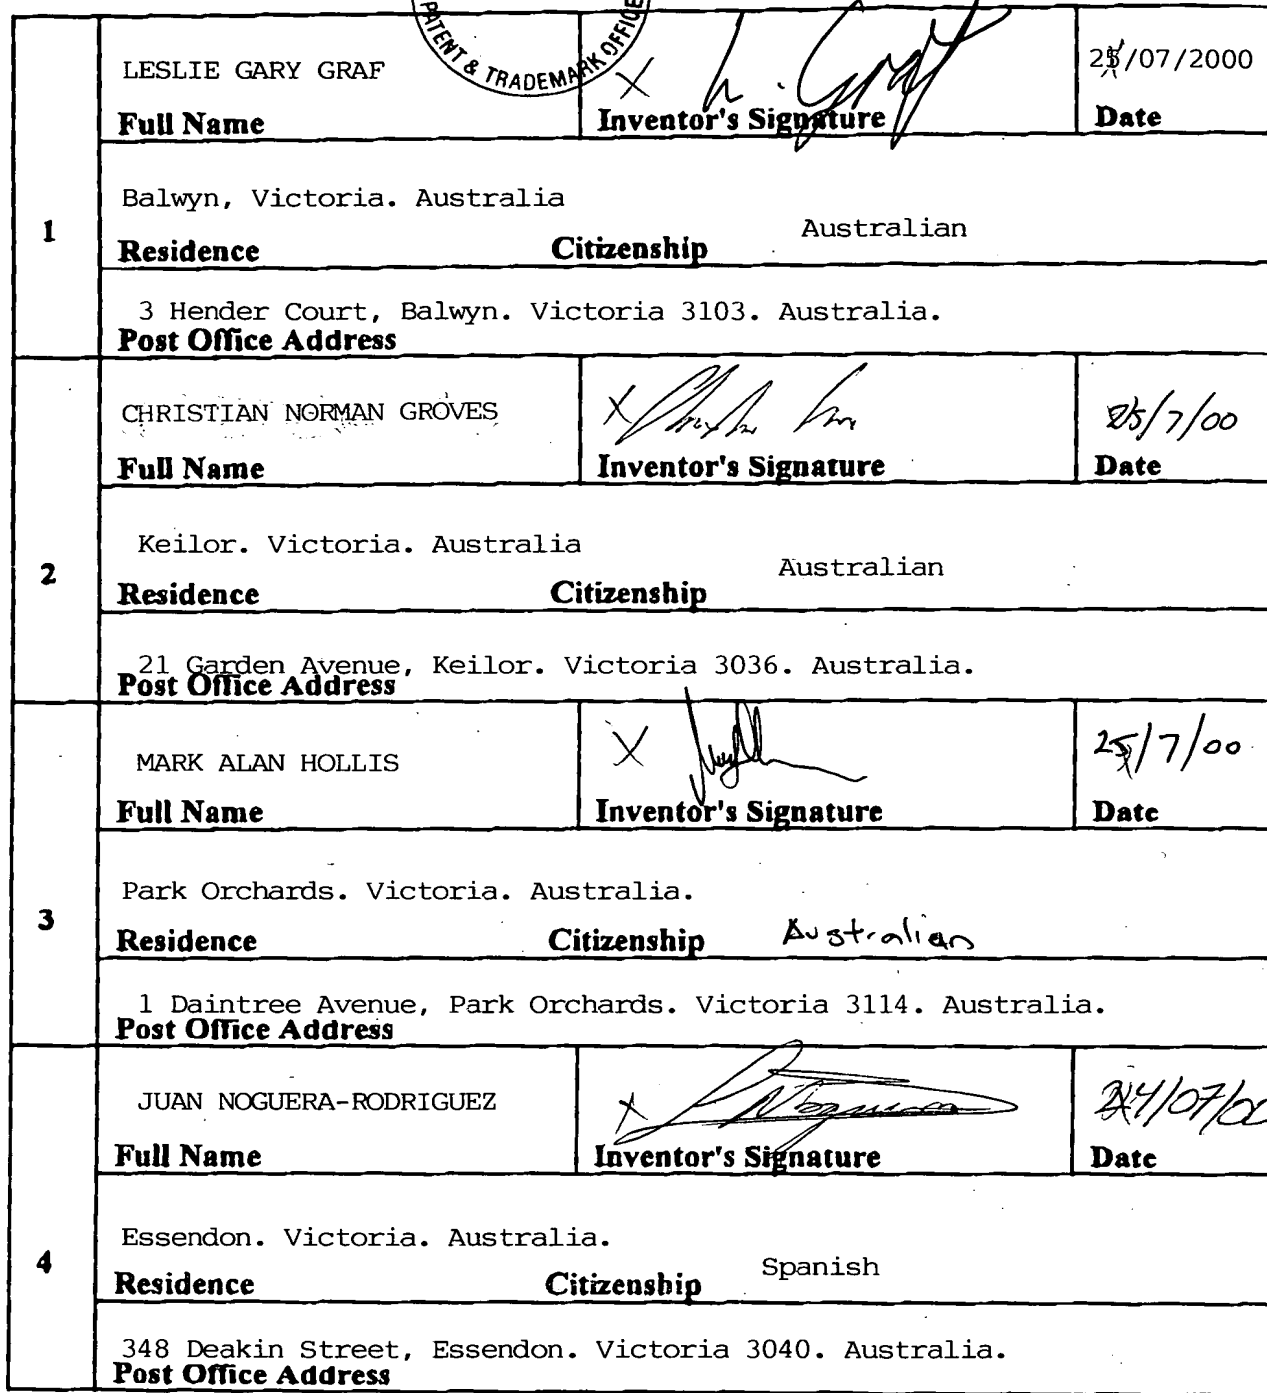 PATENT & TRADEMARK OFFICE
LESLIE GARY GRAF X L. Graf 25/07/2000
Full Name Inventor's Signature Date
1
Balwyn, Victoria. Australia
Residence Citizenship Australian
3 Hender Court, Balwyn. Victoria 3103. Australia.
Post Office Address
CHRISTIAN NORMAN GROVES X 25/7/00
Full Name Inventor's Signature Date
2
Keilor. Victoria. Australia
Residence Citizenship Australian
21 Garden Avenue, Keilor. Victoria 3036. Australia.
Post Office Address
MARK ALAN HOLLIS X 25/7/00
Full Name Inventor's Signature Date
3
Park Orchards. Victoria. Australia.
Residence Citizenship Australian
1 Daintree Avenue, Park Orchards. Victoria 3114. Australia.
Post Office Address
JUAN NOGUERA-RODRIGUEZ X 24/07/00
Full Name Inventor's Signature Date
4
Essendon. Victoria. Australia.
Residence Citizenship Spanish
348 Deakin Street, Essendon. Victoria 3040. Australia.
Post Office Address